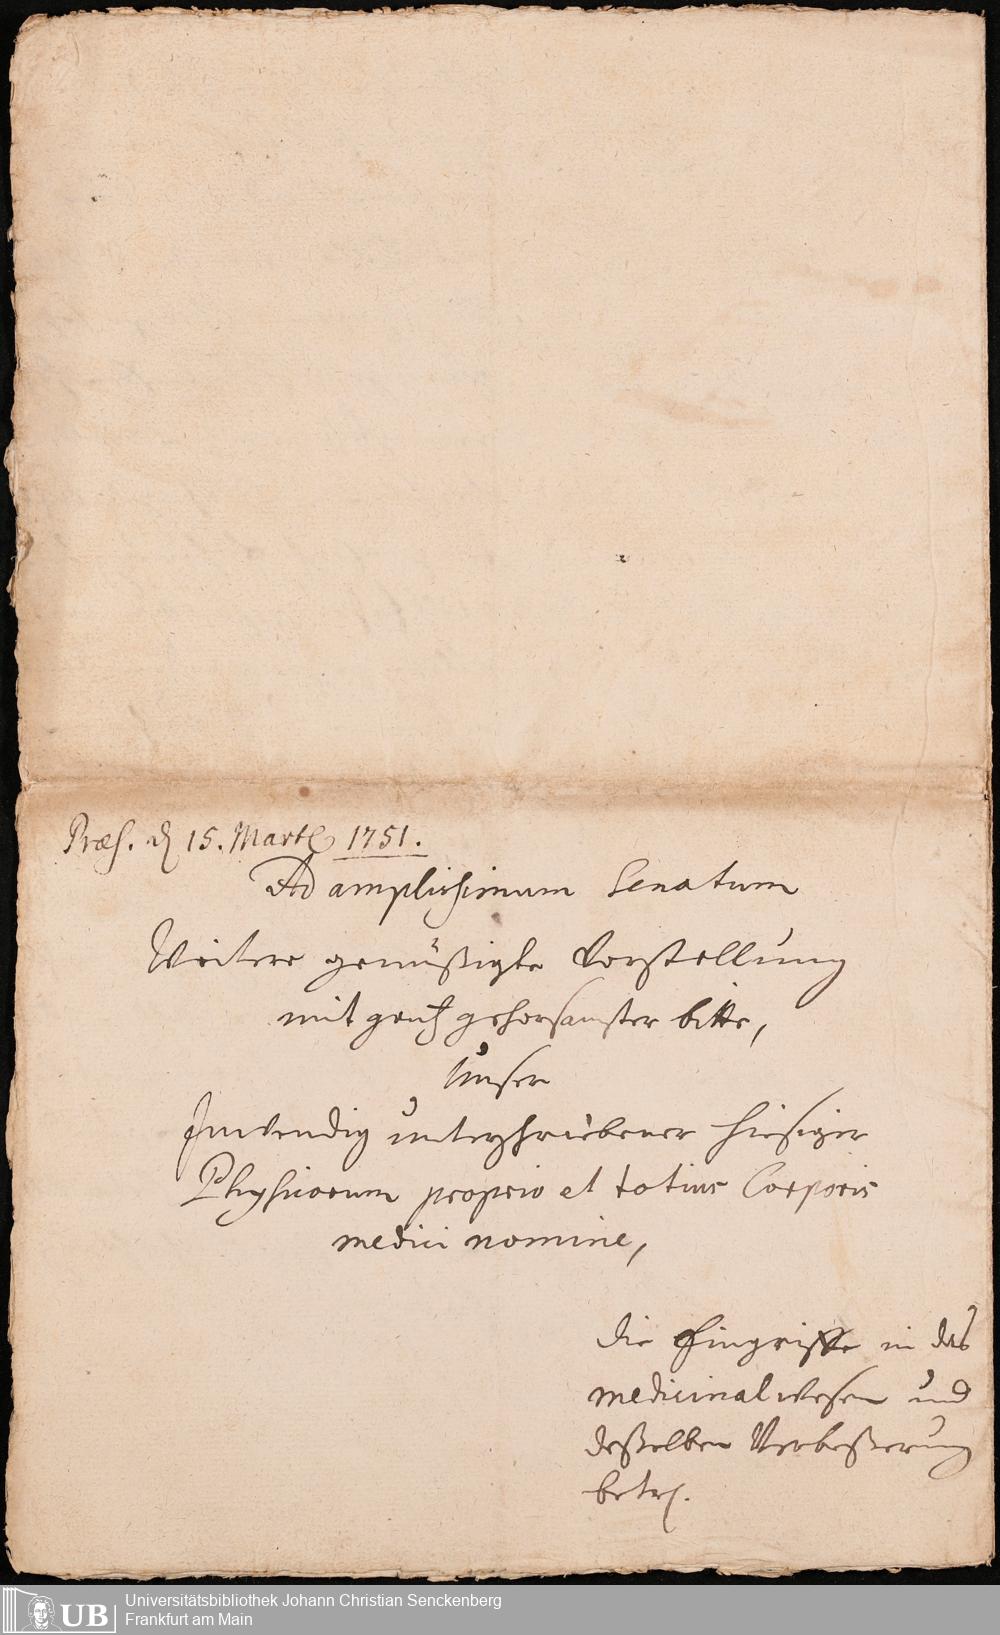 Præs. d 15. Martÿ 1751.
Ad amplissimum Senatum
Weitere gemüßigte Vorstellung
mit ganz gehorsamster bitte,
Unser
Inwendig unterschriebener hiesiger
Physicorum proprio et totius Corporis
medici nomine,
die Eingriffe in das
medicinal wesen und
deßelben Verbeßerung
betr.
UB
Universitätsbibliothek Johann Christian Senckenberg
Frankfurt am Main